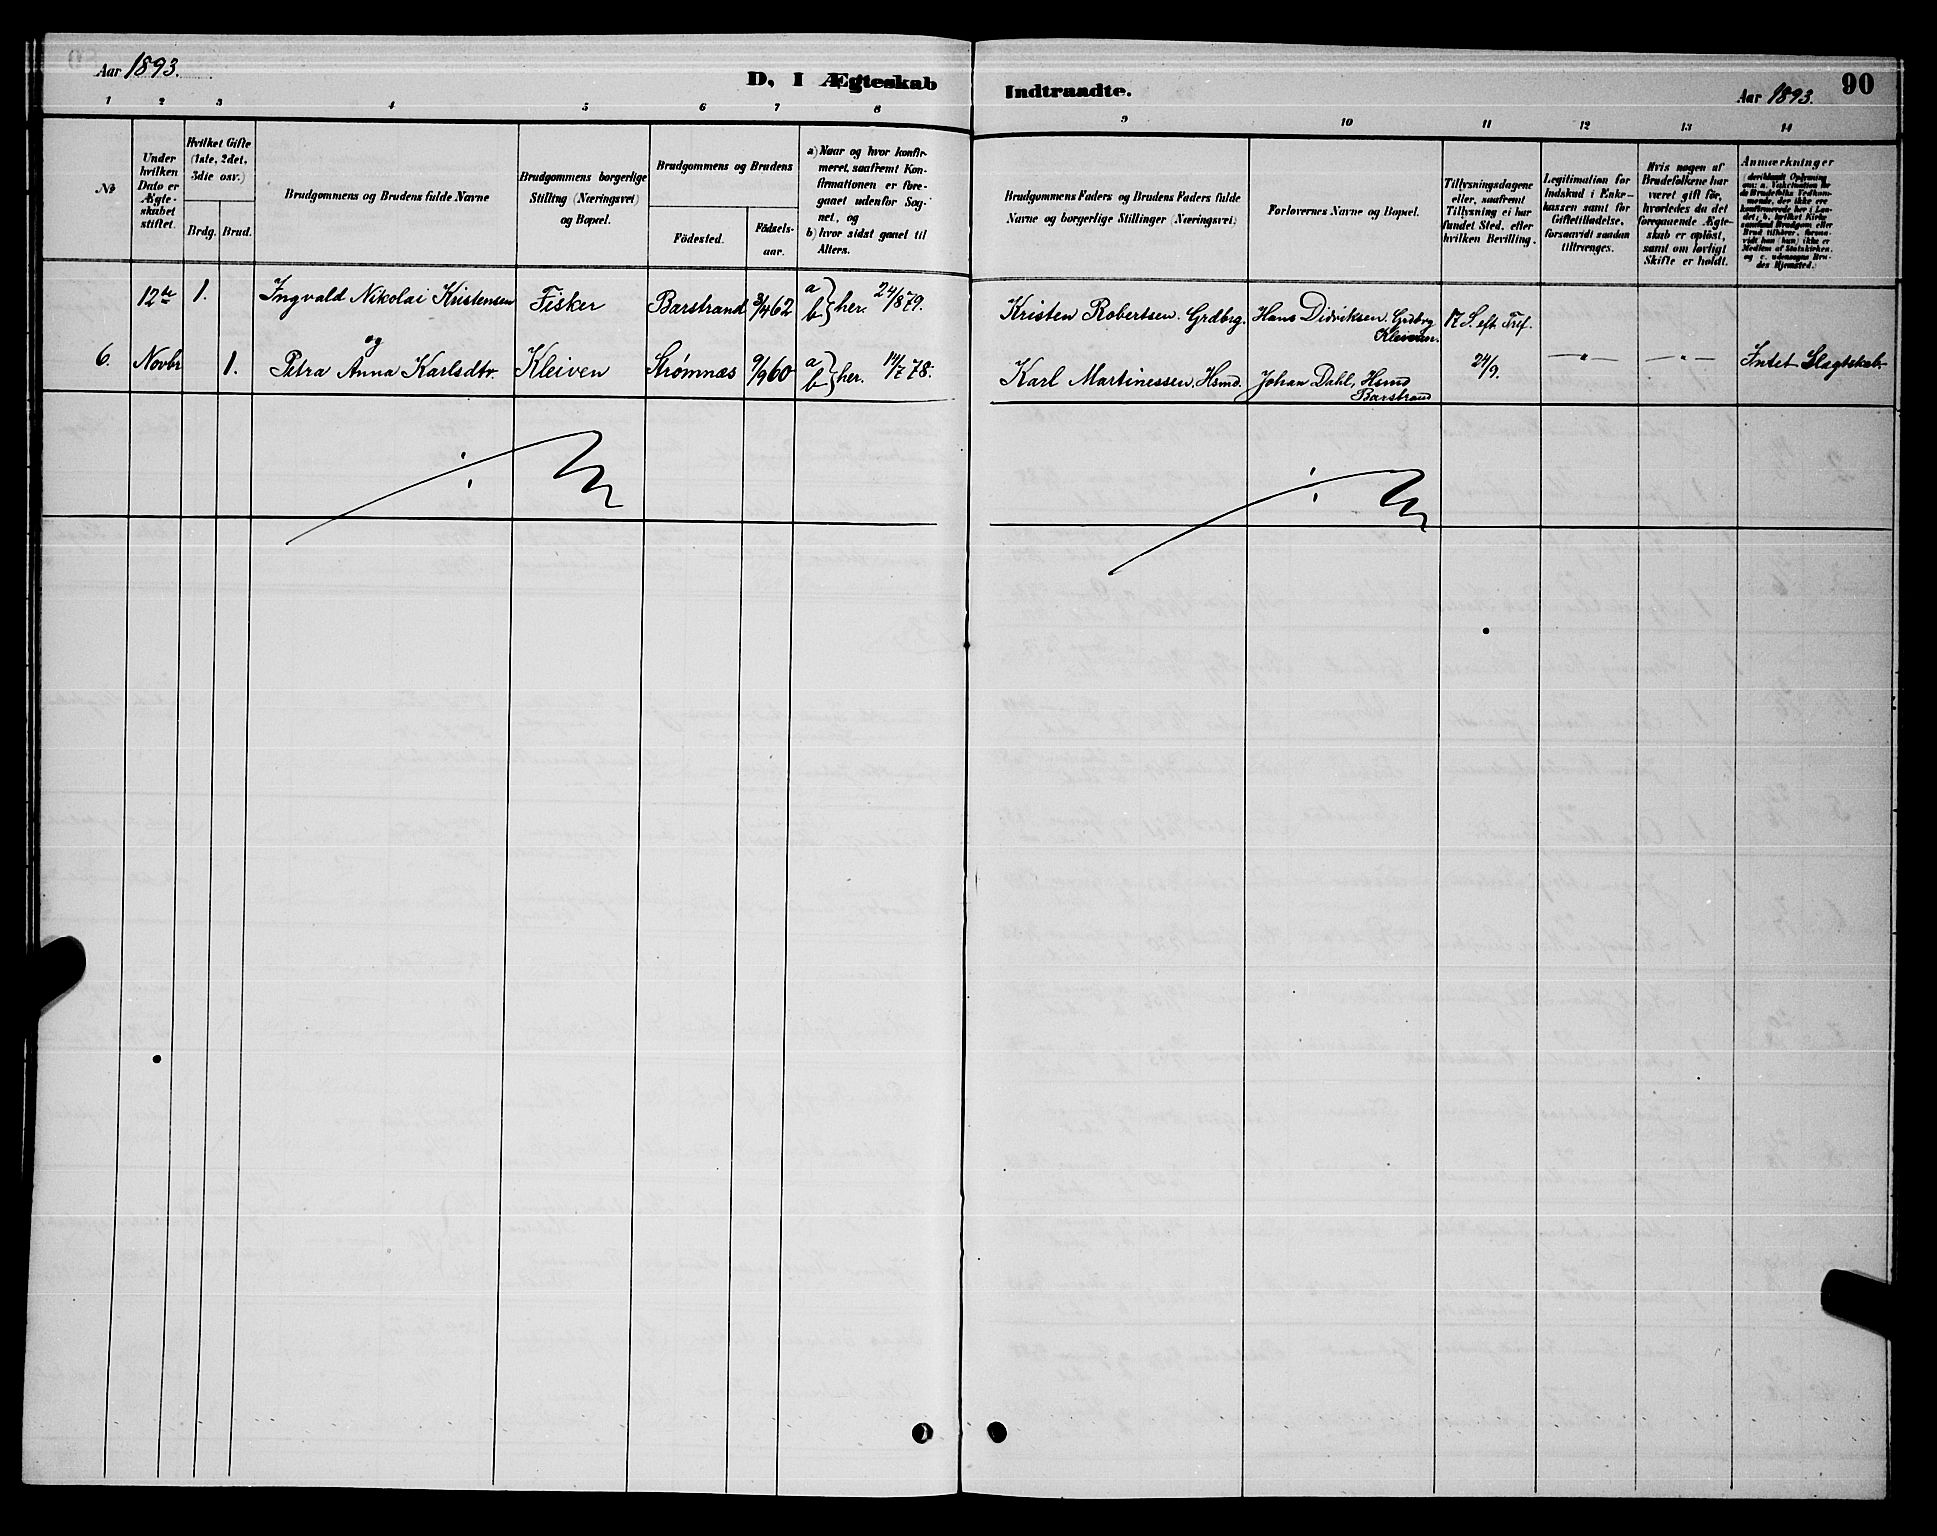 Aar 1893.
D, I Ægteskab Indtraadte.
Aar 1893.
90
1 2 3 4 5 6 7 8 9 10 11 12 13 14
No
Under hvilken Dato er Ægte-skabet stiftet.
Hvilket Gifte (1ste, 2det, 3die osv.)
Brdg. Brud.
Brudgommens og Brudens fulde Navne
Brudgommens borgerlige Stilling (Næringsvei) og Bopæl.
Brudgommens og Brudens
Födested.
Födsels-aar.
a) Naar og hvor konfir-meret, saafremt Kon-firmationen er fore-gaaet udenfor Sog-net, og
b) hvor sidst gaaet til Alters.
Brudgommens Faders og Brudens Faders fulde Navne og borgerlige Stillinger (Næringsvei)
Forlovernes Navne og Bopæl.
Tillysningsdagene eller, saafremt Tillysning ei har fundet Sted, efter hvilken Bevilling.
Legitimation for Indskud i Enke-kassen samt for Giftetilladelse, forsaavidt saadan tiltrænges.
Hvis nogen af Brudefolkene har været gift för, hvorledes da det foregaaende Ægte-skab er oplöst, samt om lovligt Skifte er holdt.
Anmærkninger
(deriblandt Oplysning om: a. Vaksination for de Brudefolks Vedkom-mende, der ikke ere konfirmerede her i Lan-det, b. hvilket Kirke-samfund Brudgom eller Brud tilhörer, forsaa-vidt han (hun) ikke er Medlem af Statskirken, og c. udensogns Bru-des Hjemsted.)
12te 1. Ingvald Nikolai Kristensen Fisker Barstrand 3/4 62 a b } her. 24/8 79. Kristen Robertsen. Grdbrg. Hans Didriksen. Grdbrg Kleiven. 17 S. eft. Trif.
og
6. Novbr 1. Petra Anna Karlsdtr. Kleiven Strømnæs 9/9 60 a b } her. 14/7 78. Karl Martinessen. Hsmd. Johan Dahl, Hsmd Barstrand 24/9. —"— —"— Intet Slagtskab.